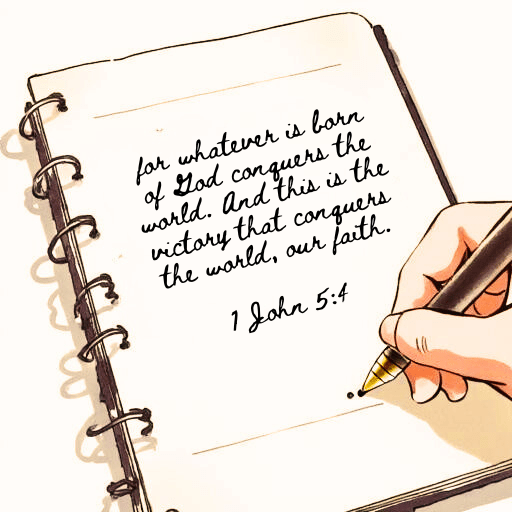 for whatever is born
of God conquers the
world. And this is the
victory that conquers
the world, our faith.
1 John 5:4